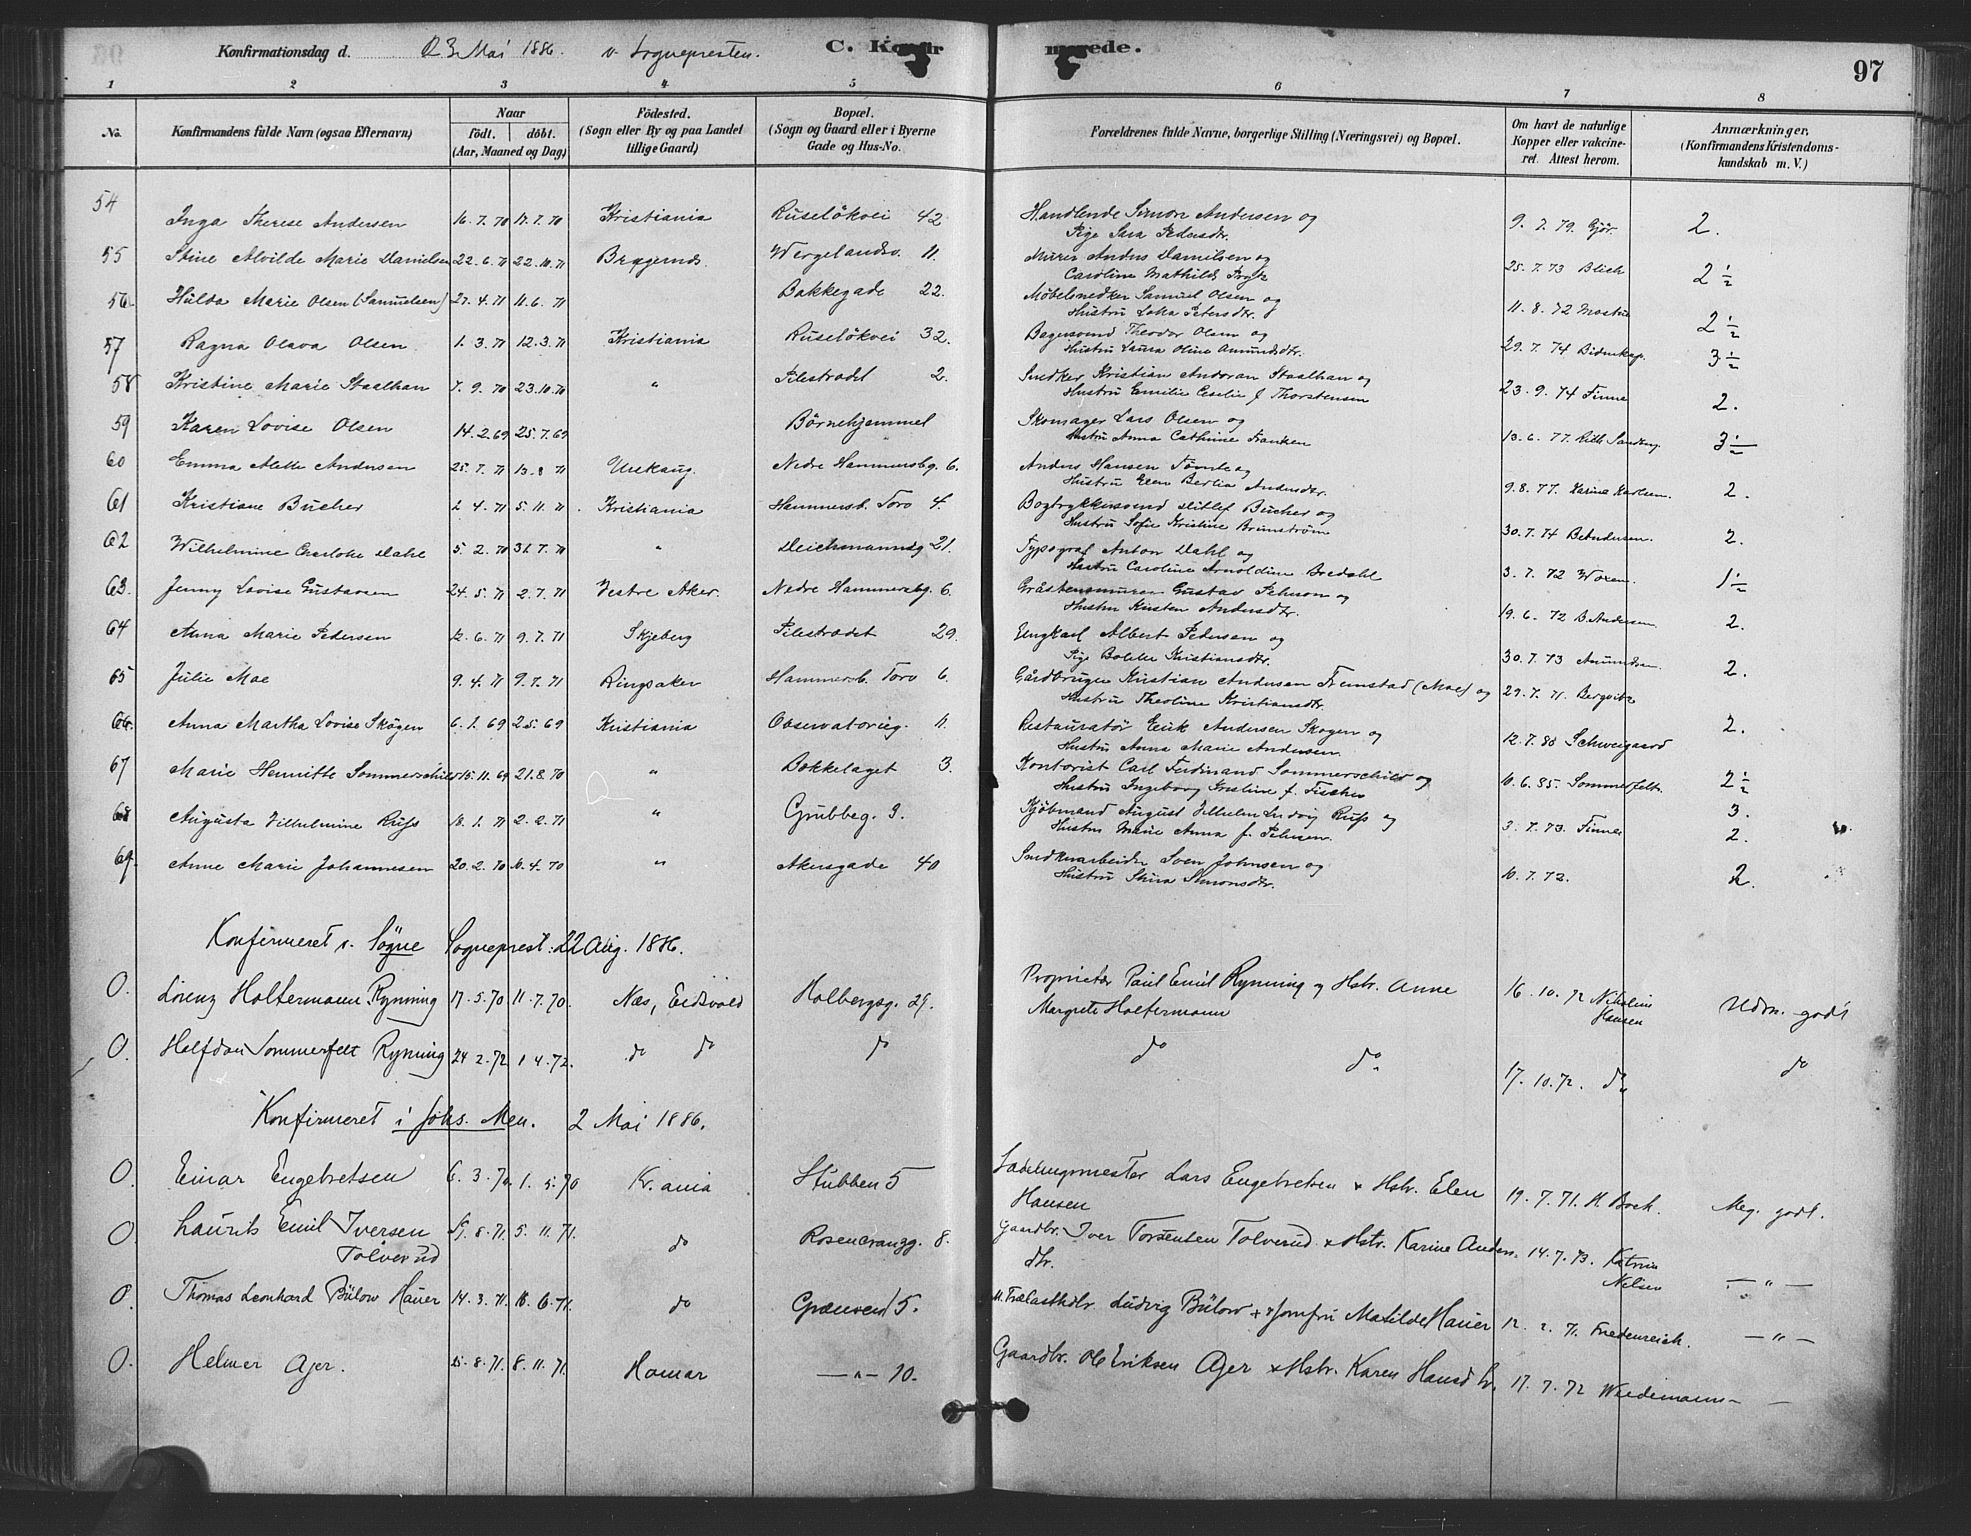 Konfirmationsdag d. 23 Mai 1886. v. Sognepresten. C. Konfirmerede. 97
1 2 3 4 5 6 7 8
No. Konfirmandens fulde Navn (ogsaa Efternavn) Naar födt. döbt. (Aar, Maaned og Dag) Födested. (Sogn eller By og paa Landet tillige Gaard) Bopæl. (Sogn og Gaard eller i Byerne Gade og Hus-No. Forældrenes fulde Navne, borgerlige Stilling (Næringsvei) og Bopæl. Om havt de naturlige Kopper eller vakcineret. Attest herom. Anmærkninger, (Konfirmandens Kristendomskundskab m. V.)
54 Inga Therese Andersen 16.7.70 17.7.70 Kristiania Ruselökvei 42 Handlende Simon Andersen og Pige Sara Pedersdtr. 9.7.79. Gjör. 2.
55 Stine Alvilde Marie Danielsen 22.6.71 22.10.71 Bragernds. Wergelandsv. 11. Murer Anders Danielsen og Caroline Mathilde 25.7.73 Blich 2 1/2
56. Hulda Marie Olsen (Samuelsen) 27.4.71 11.6.71 Bakkegade 22. Møbelsnedker Samuel Olsen og Hustru Petersdtr. 11.8.72 2 1/2
57 Ragna Olava Olsen 1.3.71 12.3.71 Kristiania Ruselökvei 32. Bagersvend Theodor Olsen og Hustru Laura Oline Amundsdtr. 29.7.74 Bidenkap. 3 1/2
58 Kristine Marie Staalhan 7.9.70 23.10.70 " Pilestrædet 2. Snedker Kristian Andoran Staalhan og Hustru Emilie Cecilie f Thorstensen 23.9.74 Finne 2.
59 Karen Lovise Olsen 14.2.69 25.7.69 Börnehjemmet Skomager Lars Olsen og Hustru Anna Cathrine Franken 13.6.77. 3 1/2
60 Emma Alette Andersen 25.7.71 13.8.71 Urskaug. Nedre Hammersbg. 6. Anders Hansen Tömte og Hustru Ellen Berlia Andersdtr. 9.8.77. Karine Karlsen. 2.
61 Kristiane Bucher 2.4.71 5.11.71 Kristiania Hammersb. Torv 4. Bogtrykkersvend Ditlef Bucher og Hustru Sofie Kristine Brunström 30.7.74 B. Andersen. 2.
62 Wilhelmine Charlotte Dahl 5.2.70 31.7.70 " Deichmannsg 21. Typograf Anton Dahl og Hustru Caroline Arnoldine Bredahl 3.7.72 Woxen. 1 1/2
63. Jenny Lovise Gustavsen 24.5.71 2.7.71 Vestre Aker. Nedre Hammersbg. 6. Gråstensmurer Gustav Pehrson og Hustru Kirsten Andersdtr. 19.6.72 B. Andersen. 2.
64 Anna Marie Pedersen 12.6.71 9.7.71 Skjeberg Pilestrædet 29. Ungkarl Albert Pedersen og Pige Bolette Kristiansdtr. 30.7.73 Amundsen. 2.
65 Julie Moe 9.4.71 9.7.71 Ringsaker Hammersb. Torv 6. Gårdbruger Kristian Andersen Fremstad (Moe) og Hustru Theoline Kristiansdtr. 29.7.71. Bergwitz
66. Anna Martha Lovise Skogen 6.1.69 2.5.69 Kristiania Observatorieg. 11. Restauratör Erik Andersen Skogen og Hustru Anna Marie Andersen. 12.7.86 Schweigaard 2.
67 Marie Henriette Sommerschild 15.11.69 21.8.70 " Bakkelaget 3. Kontorist Carl Ferdinand Sommerschild og Hustru Ingeborg Kristine f. Fischer 10.6.85. Sommerfelt. 2 1/2
68 Augusta Vilhelmine Russ 18.1.71 2.2.71 " Grubbeg. 9. Kjöbmand August Vilhelm Ludvig Russ og Hustru Marie Anna f. Pehrsen. 3.7.73. Finne 3. 2.
69. Anne Marie Johannesen 20.2.70 10.4.70 " Akersgade 40 Snedkerarbeider Sven Johnsen og Hustru Stina Simonsdtr. 10.7.72. 2.
Konfirmeret v. Sogne Sogneprest: 22 Aug. 1886.
0. Lorenz Holtermann Rynning 17.5.70 11.7.70. Næs, Eidsvold Holbergsg. 29. Proprietær Paul Emil Rynning og Hstr. Anne Margrete Holtermann 16.10.72 Nikoline Hansen Udm. godt
0. Halfdan Sommerfelt Rynning 24.2.72 1.4.72. do do do do do. 17.10.72. do do
Konfirmeret i Johs. Men. 2 Mai 1886.
0. Einar Engebretsen 6.3.70. 1.5.70 Kr.ania Stubben 5 Ladningsmester Lars Engebretsen & Hstr. Elen Hansen 19.7.71. H Boek. Meg. godt.
0. Laurits Emil Iversen Tolverud 29.8.71 5.11.71. do Rosencrantzg. 8. Gaardbr. Iver Torstenten Tolverud & Hstr. Karine Andersdtr. 14.7.73. Katrine Nelsen — " —
0. Thomas Leonhard Bülow Hauer 14.3.71. 18.6.71. do Grænsen 15. Ludvig Bülow & Jomfru Matilde Hauer 12.2.71. Friedenreich. — " —
0. Helmer Ajer. 25.8.71. 8.11.71. Hamar — " — 10. Gaardbr. Ole Eriksen Ajer & Hstr. Karen Hansdtr. 17.7.72 Wiedemann — —